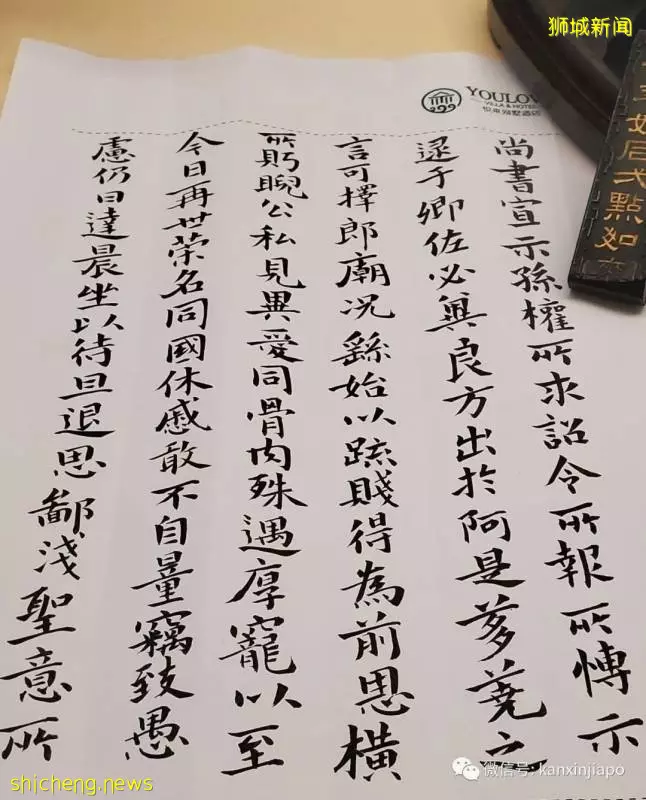 狮城新闻
YOULO
VILLA & HOTEL
尚書宣示孫權所求詔令所報所愽示
逮于卿佐必兾良方出於阿是芻蕘之
言可擇郎廟況繇始以疏賤得為前恩橫
所眄睨公私見異愛同骨肉殊遇厚寵以至
今日再世荣名同國休慼敢不自量竊致愚
慮仍日達晨坐以待旦退思鄙淺聖意所
點如
微信号: kanxinjiapo
shicheng.news